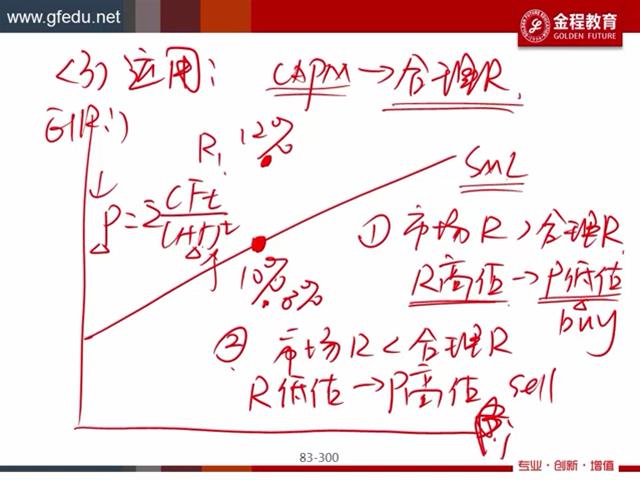 www.gfedu.net
金程教育
GOLDEN FUTURE
<3> 运用: CAPM → 合理R
E(Ri)
R, 12%
SML
P=Σ CFt/(1+r)^t
① 市场R > 合理R
10%
8%
R高估 → P低估
buy
② 市场R < 合理R
R低估 → P高估 sell
βi
83-300
专业·创新·增值